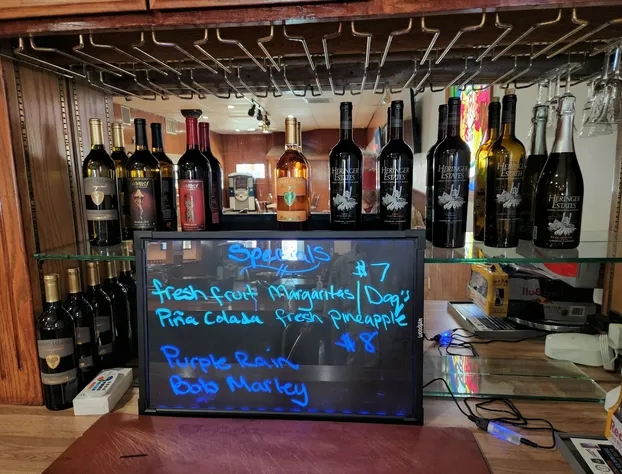 HERINGER ESTATES
HERINGER ESTATES
HERINGER ESTATES
HERINGER ESTATES
HERINGER ESTATES
Specials
$7
fresh fruit Margaritas/Daq's
Piña Colada fresh pineapple
$8
Purple Rain
Bob Marley